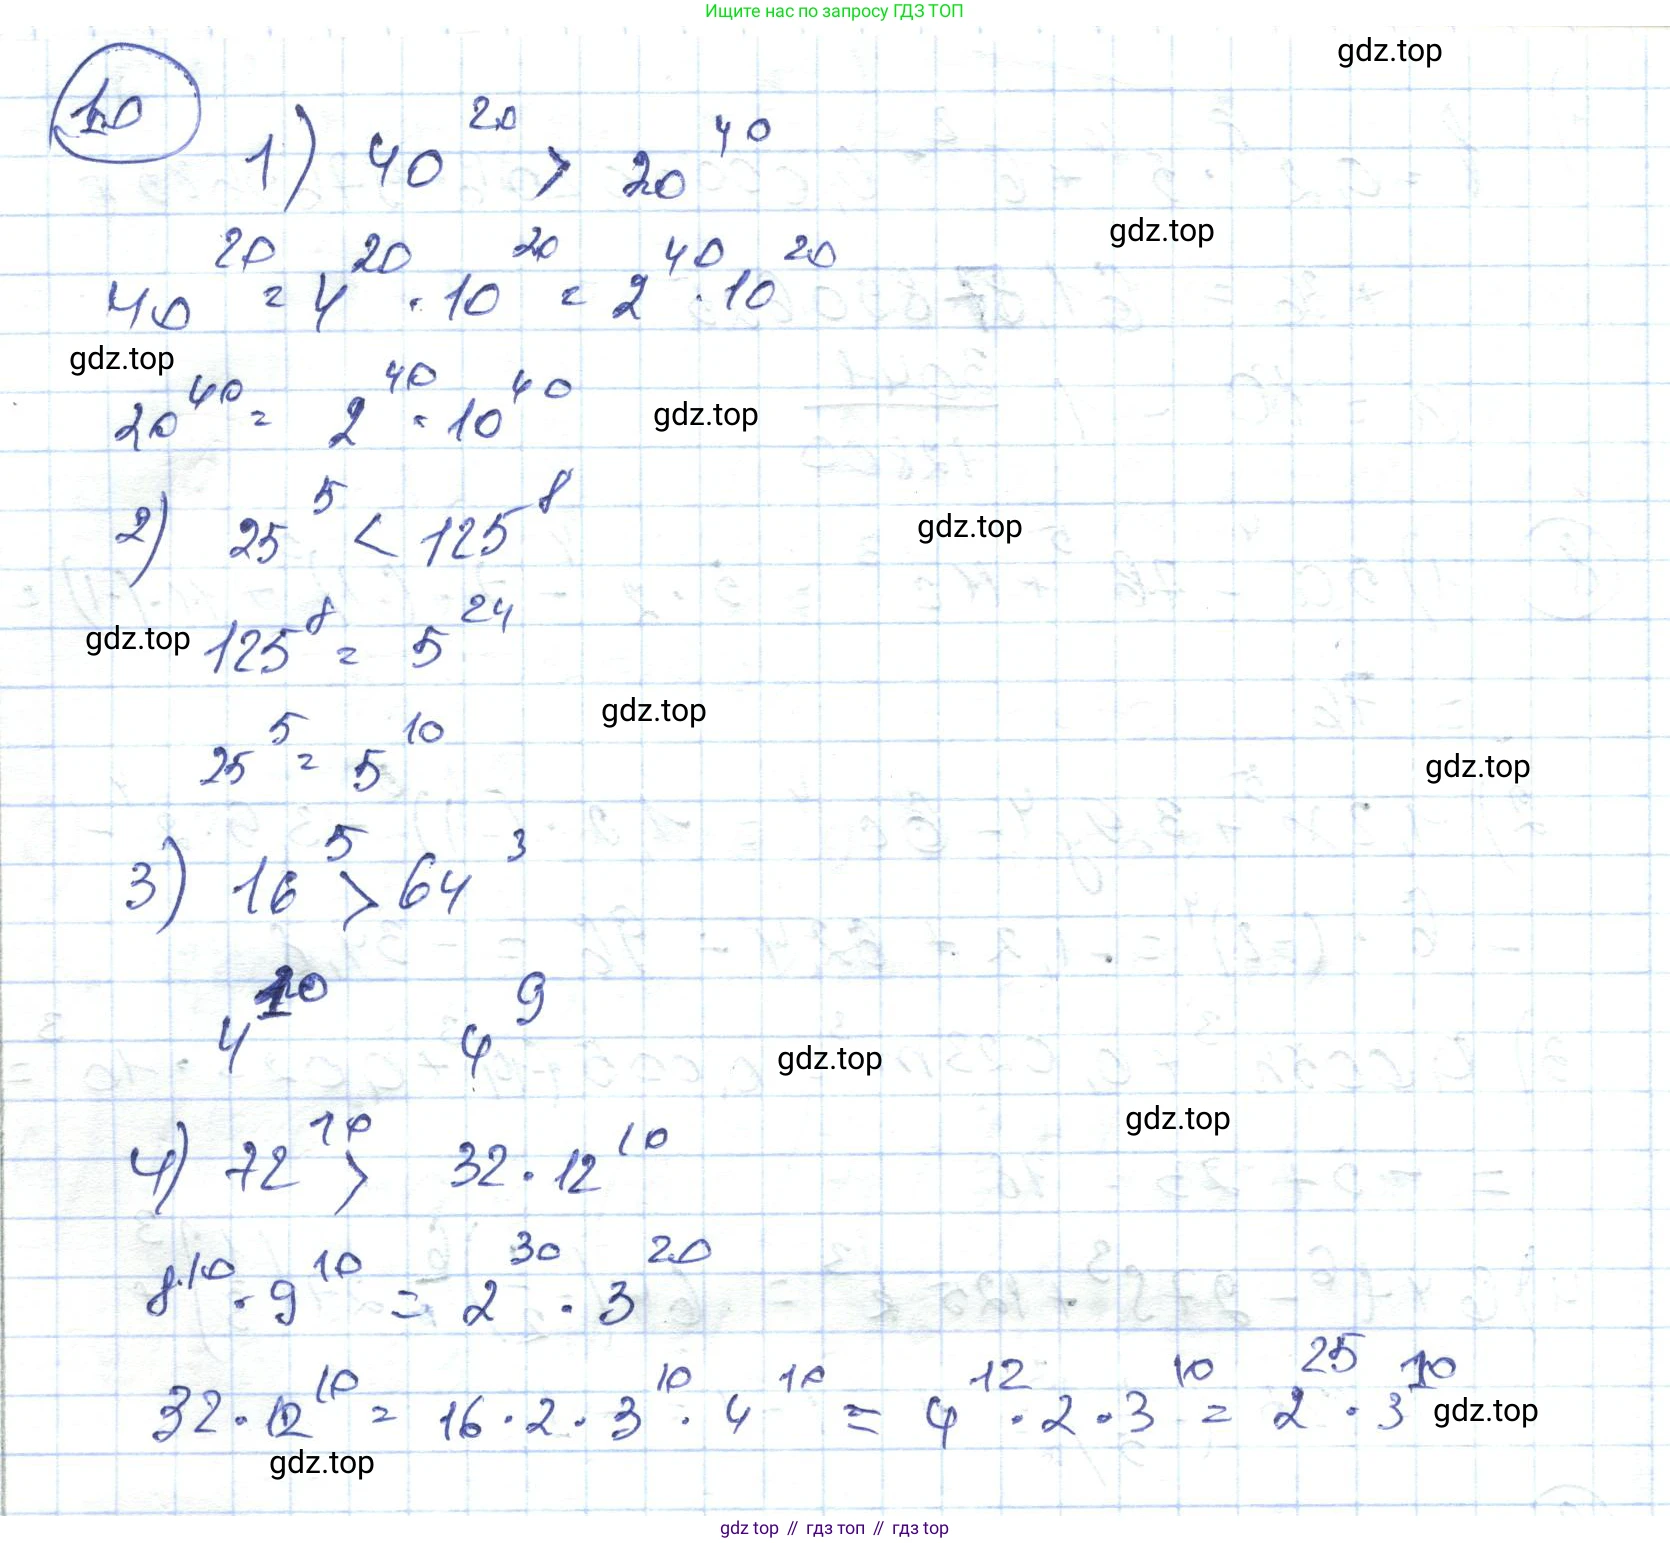 Ищите нас по запросу ГДЗ ТОП
gdz.top
10
1) 40^20 > 20^40
gdz.top
40^20 = 4^20 · 10^20 = 2^40 · 10^20
gdz.top
20^40 = 2^40 · 10^40
gdz.top
2) 25^5 < 125^8
gdz.top
125^8 = 5^24
gdz.top
gdz.top
25^5 = 5^10
gdz.top
3) 16^5 > 64^3
4^10 4^9
gdz.top
gdz.top
4) 72^10 > 32 · 12^10
8^10 · 9^10 = 2^30 · 3^20
32 · 12^10 = 16 · 2 · 3^10 · 4^10 = 4^12 · 2 · 3^10 = 2^25 · 3^10
gdz.top
gdz.top
gdz top // гдз топ // гдз top